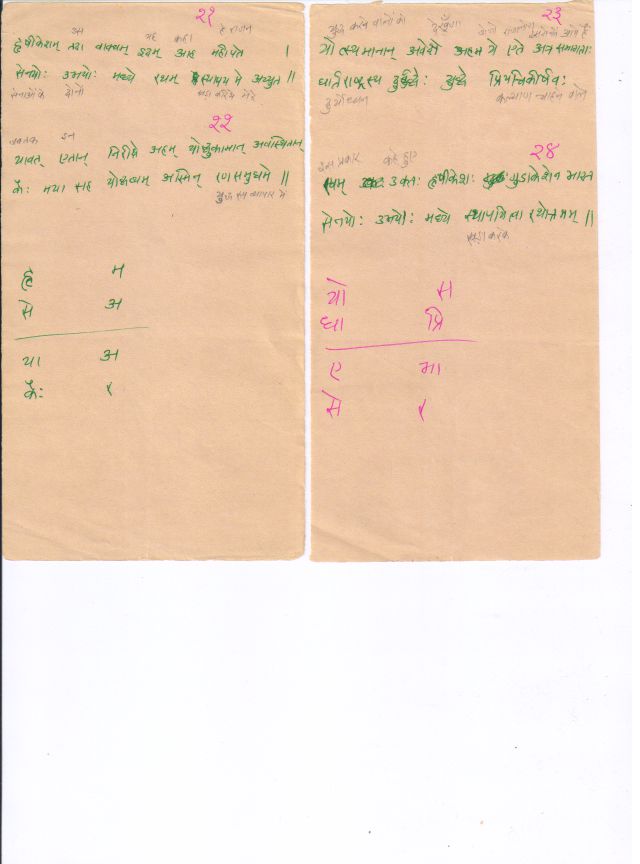 २१
उस यह कहा हे राजन
हृषीकेशम् तदा वाक्यम् इदम् आह महीपते ।
सेनयोः उभयोः मध्ये रथम् स्थापय मे अच्युत ॥
सेनाओंके दोनों खड़ा करिये मेरे
२२
जबतक इन
यावत् एतान् निरीक्षे अहम् योद्धुकामान् अवस्थितान्
कैः मया सह योद्धव्यम् अस्मिन् रणसमुद्यमे ॥
युद्ध रूप व्यापार मे
हृ म
से अ
या अ
कैः र
२३
युद्ध करने वालों को देखूँगा
योत्स्यमानान् अवेक्षे अहम् ये एते अत्र समागताः
धार्तराष्ट्रस्य दुर्बुद्धेः युद्धे प्रियचिकीर्षवः
दुर्योधन कल्याण चाहने वाले
२४
इस प्रकार कहे हुए
एवम् उक्तः हृषीकेशः गुडाकेशेन भारत
सेनयोः उभयोः मध्ये स्थापयित्वा रथोत्तमम् ॥
खड़ा करके
यो स
धा प्रि
ए भा
से र